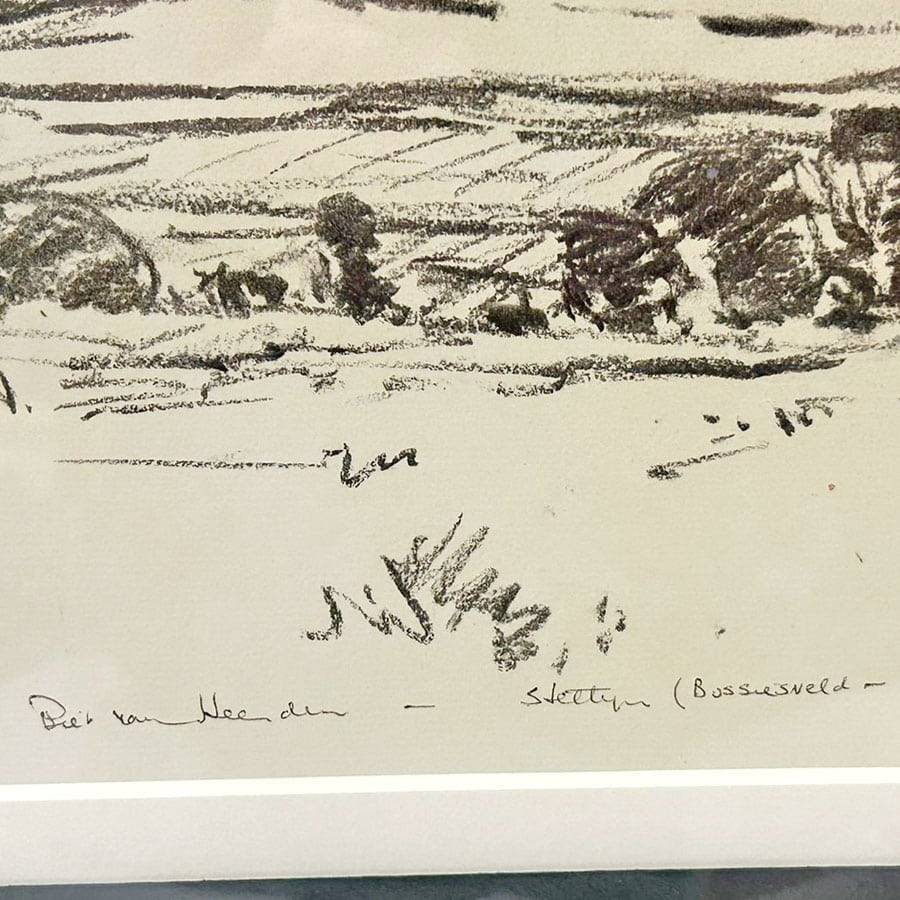 Piet van Heerden — Stettyn (Bossiesveld —